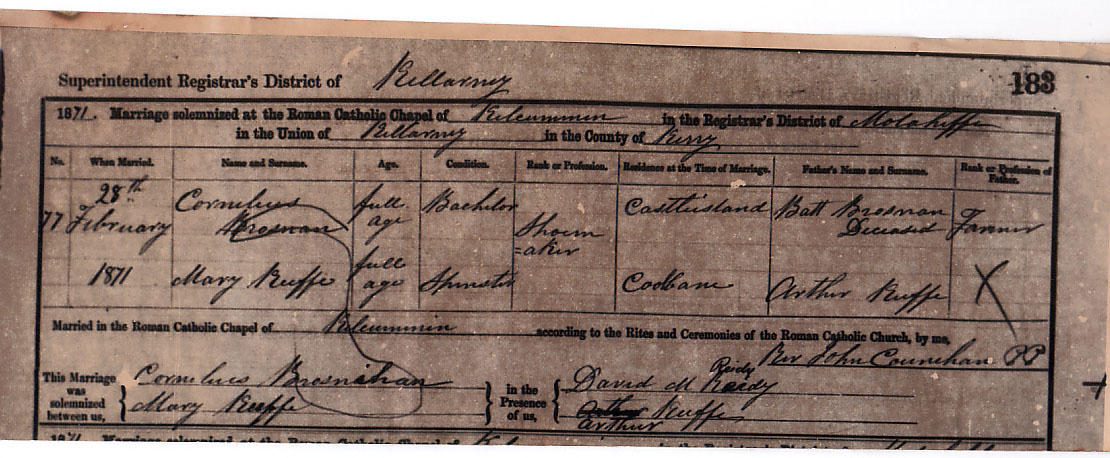 Superintendent Registrar's District of Killarney
183
1871. Marriage solemnized at the Roman Catholic Chapel of Kilcummin in the Registrar's District of Molahiffe
in the Union of Killarney in the County of Kerry
No. When Married. Name and Surname. Age. Condition. Rank or Profession. Residence at the Time of Marriage. Father's Name and Surname. Rank or Profession of Father.
77 28th February 1871
Cornelius Brosnan full age Bachelor Shoem=aker Castleisland Batt Brosnan Deceased Farmer
Mary Keeffe full age Spinster Coolbane Arthur Keeffe X
Married in the Roman Catholic Chapel of Kilcummin according to the Rites and Ceremonies of the Roman Catholic Church, by me,
Rev John Counihan PP
This Marriage was solemnized between us, { Cornelius Brosnahan } in the Presence of us, { David M Reidy Reedy
Mary Keeffe Arthur Keeffe
Arthur
1871 Marriage solemnized at the Roman Catholic Chapel of